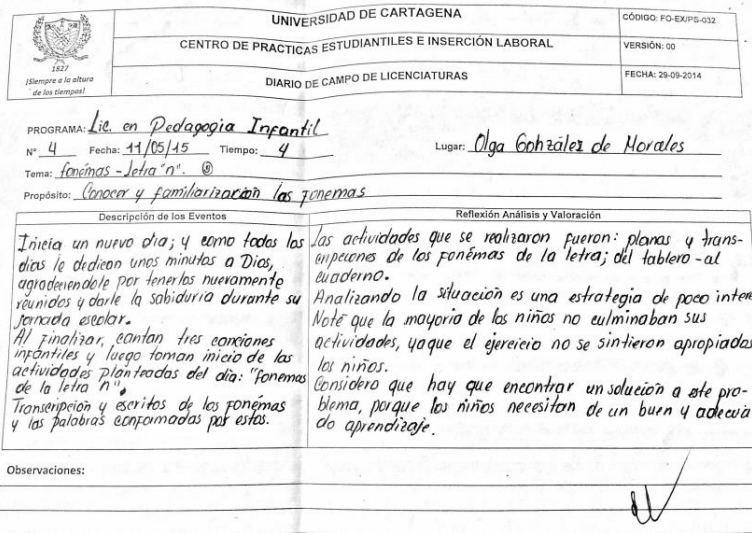 UNIVERSIDAD DE CARTAGENA
CENTRO DE PRACTICAS ESTUDIANTILES E INSERCIÓN LABORAL
DIARIO DE CAMPO DE LICENCIATURAS
CÓDIGO: FO-EX/PS-032
VERSIÓN: 00
FECHA: 29-09-2014
1827
¡Siempre a la altura
de los tiempos!
PROGRAMA: Lic. en Pedagogia Infantil
N° 4 Fecha: 11/05/15 Tiempo: 4 Lugar: Olga González de Morales
Tema: fonémas - letra "n".
Propósito: Conocer y familiarización las fonemas
Descripción de los Eventos
Inicia un nuevo dia; y como todos los
dias le dedican unos minutos a Dios,
agradeciendole por tenerlos nuevamente
reunidos y darle la sabiduria durante su
jornada escolar.
Al finalizar, cantan tres canciones
infantiles y luego toman inicio de las
actividades planteadas del dia: "fonemas
de la letra "n".
Transcripción y escritos de los fonémas
y las palabras conformadas por estos.
Reflexión Análisis y Valoración
Las actividades que se realizaron fueron: planas y trans-
cripciones de los fonémas de la letra; del tablero -al
cuaderno.
Analizando la situación es una estrategia de poco inter
Noté que la mayoria de los niños no culminaban sus
actividades, yaque el ejercicio no se sintieron apropiados
los niños.
Considero que hay que encontrar un solución a este pro-
blema, porque los niños necesitan de un buen y adecua
do aprendizaje.
Observaciones: